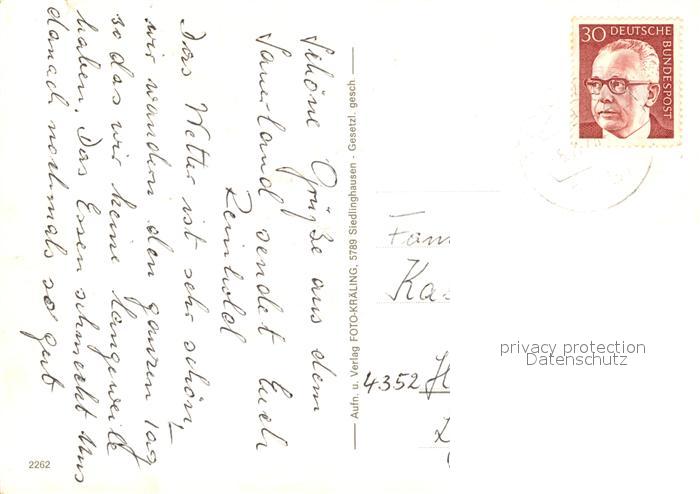 Schöne Grüße aus dem
Sauerland sendet Euch
Reinhold
Das Wetter ist sehr schön,
wir wandern den ganzen Tag
so das wir keine Langeweile
haben. Das Essen schmeckt uns
danach nochmals so gut
Aufn. u. Verlag FOTO-KRÄLING, 5789 Siedlinghausen - Gesetzl. gesch.
30 DEUTSCHE
BUNDESPOST
Fam
Kas
4352 H
privacy protection
Datenschutz
2262